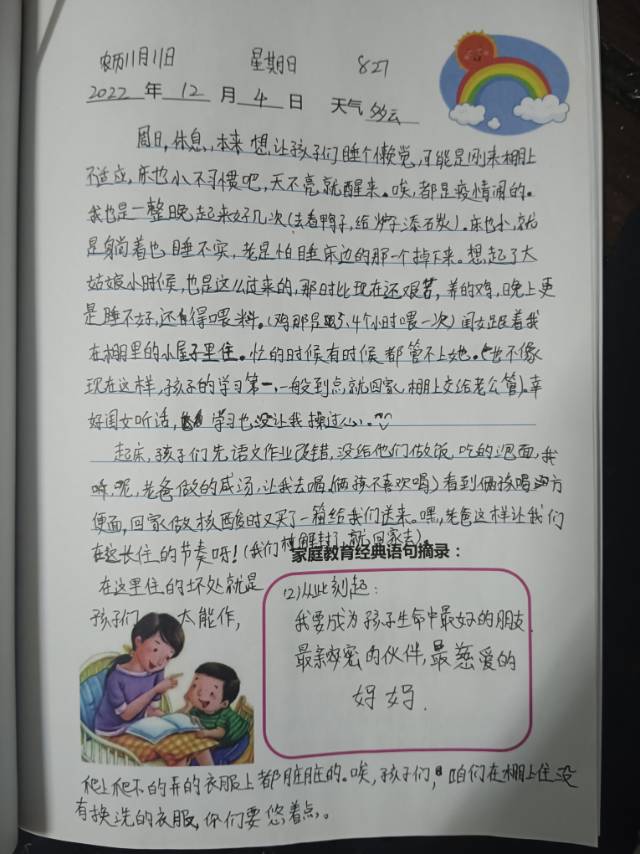 农历11月11日 星期日 827
2022 年 12 月 4 日 天气 多云
周日,休息,本来想让孩子们睡个懒觉,可能是刚来棚上
不适应,床也小不习惯吧,天不亮就醒来。唉,都是疫情闹的。
我也是一整晚起来好几次(去看鸭子,给炉子添石炭)。床也小,就
是躺着也睡不实,老是怕睡床边的那一个掉下来。想起了大
姑娘小时候,也是这么过来的,那时比现在还艰苦,养的鸡,晚上更
是睡不好,还得喂料。(鸡那是3.4个小时喂一次)闺女跟着我
在棚里的小屋子里住。忙的时候有时候都管不上她。(也不像
现在这样,孩子的学习第一,一般到点就回家,棚上交给老公管)。幸
好闺女听话,学习也没让我操过心。
起床,孩子们先语文作业改错,没给他们做饭,吃的泡面,我
呢,老爸做的咸汤,让我去喝(俩孩不喜欢喝)看到俩孩喝方
便面,回家做核酸时又买了一箱给我们送来。嘿,老爸这样让我们
在这长住的节奏呀!(我们村解封了,就回家去)
家庭教育经典语句摘录:
在这里住的坏处就是
孩子们 太能作,
(2)从此刻起:
我要成为孩子生命中最好的朋友,
最亲密的伙伴,最慈爱的
妈妈.
爬上爬下的弄的衣服上都脏脏的。唉,孩子们,咱们在棚上住没
有换洗的衣服,你们要悠着点。